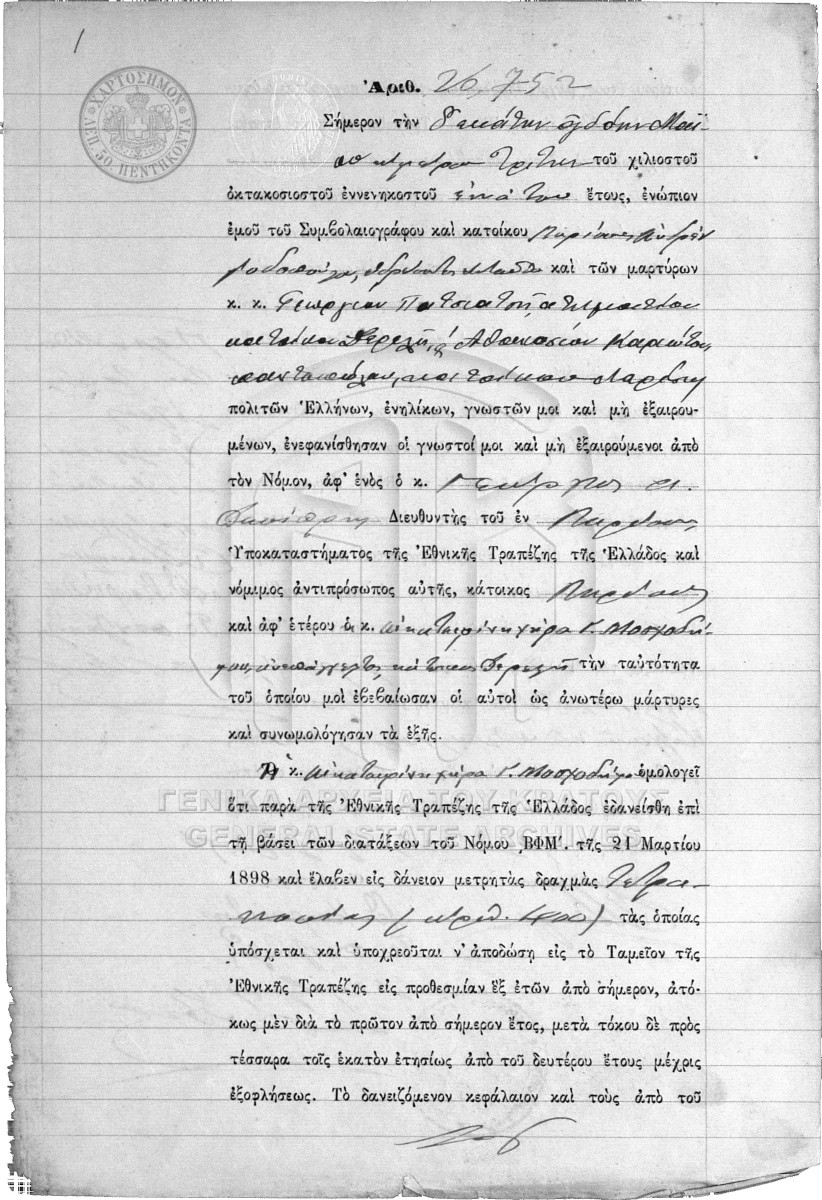 1
ΧΑΡΤΟΣΗΜΟΝ
ΛΕΠ. 50 ΠΕΝΤΗΚΟΝΤΑ
Ἀριθ. 26,752
Σήμερον τὴν δεκάτην ὀγδόην Μαΐ-
ου ἡμέραν Τρίτην τοῦ χιλιοστοῦ
ὀκτακοσιοστοῦ ἐννενηκοστοῦ ἐνάτου ἔτους, ἐνώπιον
ἐμοῦ τοῦ Συμβολαιογράφου καὶ κατοίκου Λαρίσσης
καὶ τῶν μαρτύρων
κ. κ. Γεωργίου
κατοίκου Δερελῆ καὶ Ἀθανασίου
παντοπώλου, κατοίκου Λαρίσσης
πολιτῶν Ἑλλήνων, ἐνηλίκων, γνωστῶν μοι καὶ μὴ ἐξαιρου-
μένων, ἐνεφανίσθησαν οἱ γνωστοί μοι καὶ μὴ ἐξαιρούμενοι ἀπὸ
τὸν Νόμον, ἀφ' ἑνὸς ὁ κ. Γεώργιος
Διευθυντὴς τοῦ ἐν Λαρίσσῃ
Ὑποκαταστήματος τῆς Ἐθνικῆς Τραπέζης τῆς Ἑλλάδος καὶ
νόμιμος ἀντιπρόσωπος αὐτῆς, κάτοικος Λαρίσσης
καὶ ἀφ' ἑτέρου ἡ κ. Αἰκατερίνη χήρα Γ. Μοσχοδή-
μου, ἀνεπάγγελτος, κάτοικος Δερελῆ τὴν ταὐτότητα
τοῦ ὁποίου μοὶ ἐβεβαίωσαν οἱ αὐτοὶ ὡς ἀνωτέρω μάρτυρες
καὶ συνωμολόγησαν τὰ ἑξῆς.
Ἡ κ. Αἰκατερίνη χήρα Γ. Μοσχοδήμου ὁμολογεῖ
ΓΕΝΙΚΑ ΑΡΧΕΙΑ ΤΟΥ ΚΡΑΤΟΥΣ
ὅτι παρὰ τῆς Ἐθνικῆς Τραπέζης τῆς Ἑλλάδος ἐδανείσθη ἐπὶ
GENERAL STATE ARCHIVES
τῇ βάσει τῶν διατάξεων τοῦ Νόμου ͵ΒΦΜ'. τῆς 21 Μαρτίου
1898 καὶ ἔλαβεν εἰς δάνειον μετρητὰς δραχμὰς Τετρα-
κοσίας (ἀριθ. 400) τὰς ὁποίας
ὑπόσχεται καὶ ὑποχρεοῦται ν' ἀποδώσῃ εἰς τὸ Ταμεῖον τῆς
Ἐθνικῆς Τραπέζης εἰς προθεσμίαν ἓξ ἐτῶν ἀπὸ σήμερον, ἀτό-
κως μὲν διὰ τὸ πρῶτον ἀπὸ σήμερον ἔτος, μετὰ τόκου δὲ πρὸς
τέσσαρα τοῖς ἑκατὸν ἐτησίως ἀπὸ τοῦ δευτέρου ἔτους μέχρις
ἐξοφλήσεως. Τὸ δανειζόμενον κεφάλαιον καὶ τοὺς ἀπὸ τοῦ